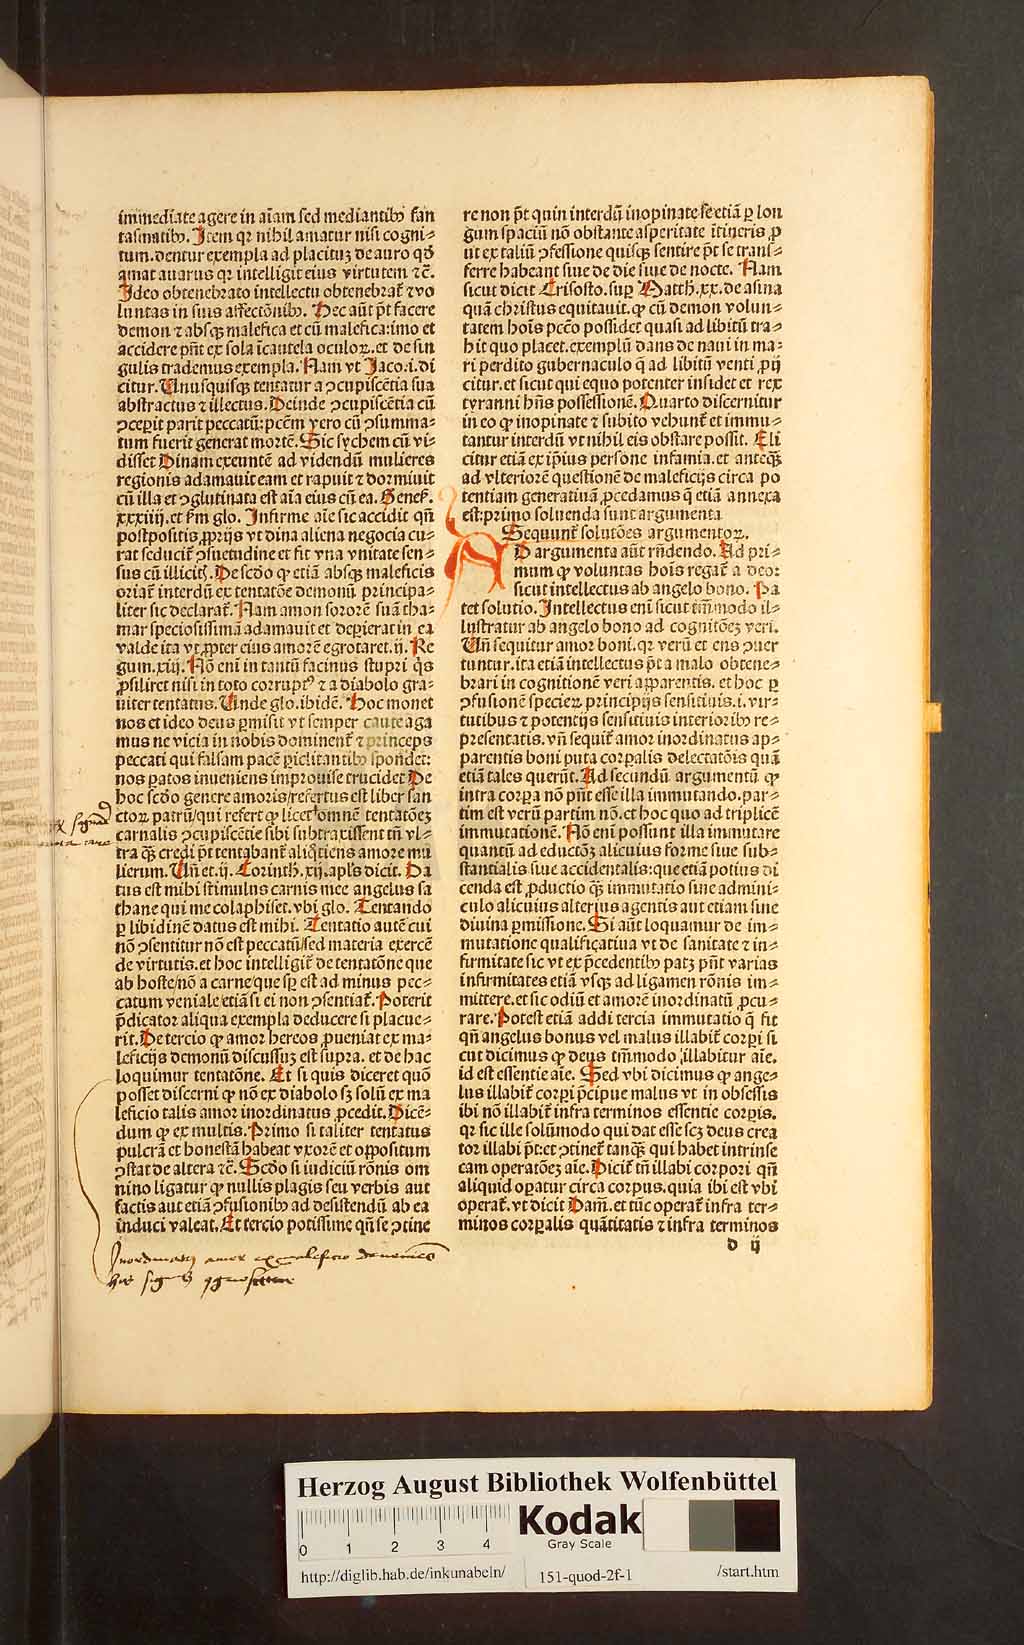 immediate agere in aīam sed mediantibꝰ fan
tasmatibꝰ. Item qꝛ nihil amatur nisi cogni⸗
tum. dentur exempla ad placituꝫ de auro qđ
amat auarus qꝛ intelligit eius virtutem ⁊c̄.
Ideo obtenebrato intellectu obtenebrat᷑ ⁊ vo
luntas in suis affectōnibꝰ. Hec aūt p̄t facere
demon ⁊ absqꝫ malefica et cū malefica: imo et
accidere pn̄t ex sola īcautela oculoꝝ. et de sin
gulis trademus exempla. Nam vt Jaco. i. di
citur. Unusquisqꝫ tentatur a ꝯcupiscētia sua
abstractus ⁊ illectus. Deinde ꝯcupiscētia cū
ꝯceperit parit peccatū: pcc̄m vero cū ꝯsumma⸗
tum fuerit generat mortē. Sic sychem cū vi⸗
disset Dinam exeuntē ad videndū mulieres
regionis adamauit eam et rapuit ⁊ dormiuit
cū illa et ꝯglutinata est aīa eius cū ea. Genes̄.
xxxiiij. et s̄m glo. Infirme aīe sic accidit qn̄
postpositis ꝓprijs vt dina aliena negocia cu⸗
rat seducit᷑ ꝯsuetudine et fit vna vnitate sen⸗
sus cū illicitꝭ. De scd̄o ꝙ etiā absqꝫ maleficis
oriat᷑ interdū ex tentatōe demonū principa⸗
liter sic declarat᷑. Nam amon sororē suā tha⸗
mar speciosissimā adamauit et deꝑierat in ea
valde ita vt ꝓpter eius amorē egrotaret. ij. Re
gum. xiij. Nō enī in tantū facinus stupri q̇s
ꝓsiliret nisi in toto corruptꝰ ⁊ a diabolo gra⸗
uiter tentatus. Unde glo. ibidē. Hoc monet
nos et ideo deus ꝑmisit vt semper caute aga
mus ne vicia in nobis dominent᷑ ⁊ princeps
peccati qui falsam pacē ꝑiclitantibꝰ spondet:
nos ꝑatos inueniens improuise trucidet De
hoc scd̄o genere amoris/refertus est liber san
ctoꝝ patrū/qui refert ꝙ licet omnē tentatōeꝫ
carnalis ꝯcupiscētie sibi subtraxissent tn̄ vl⸗
tra qꝫ̄ credi p̄t tentabant᷑ aliq̄tiens amore mu
lierum. Un̄ et. ij. Corinth. xij. apl's dicit. Da
tus est mihi stimulus carnis mee angelus sa
thane qui me colaphiset. vbi glo. Tentando
ꝑ libidinē datus est mihi. Tentatio autē cui
nō ꝯsentitur nō est peccatū/sed materia exercē
de virtutis. et hoc intelligit᷑ de tentatōne que
ab hoste/nō a carne/que sꝑ est ad minus pec⸗
catum veniale/etiā si ei non ꝯsentiat᷑. Poterit
p̄dicator aliqua exempla deducere si placue⸗
rit. De tercio ꝙ amor hereos ꝓueniat ex ma⸗
leficijs demonū discussuꝫ est supra. et de hac
loquimur tentatōne. Et si quis diceret quō
posset discerni ꝙ nō ex diabolo sꝫ solū ex ma
leficio talis amor inordinatus ꝓcedit. Dicē⸗
dum ꝙ ex multis. Primo si taliter tentatus
pulcrā et honestā habeat vxorē et oppositum
ꝯstat de altera ⁊c̄. Scd̄o si iudiciū rōnis om
nino ligatur ꝙ nullis plagis seu verbis aut
factis aut etiā ꝯfusionibꝰ ad desistendū ab ea
induci valeat. Et tercio potissime qn̄ se ꝯtine
Inordinatꝰ amor ex maleficio demonis
his sig̅s ꝯgnoscitur
re non p̄t quin interdū inopinate se etiā ꝑ lon
gum spaciū nō obstante asperitate itineris ꝓ
ut ex taliū ꝯfessione quisqꝫ sentire p̄t se trans⸗
ferre habeant siue de die siue de nocte. Nam
sicut dicit Crisosto. suꝑ Matth. xx. de asina
quā christus equitauit. ꝙ cū demon volun⸗
tatem hoīs pcc̄o possidet quasi ad libitū tra⸗
hit quo placet. exemplū dans de naui in ma⸗
ri perdito gubernaculo q̄ ad libitū venti ꝓij
citur. et sicut qui equo potenter insidet et rex
tyranni hn̄s possessionē. Quarto discernitur
in eo ꝙ inopinate ⁊ subito vehunt᷑ et immu⸗
tantur interdū vt nihil eis obstare possit. Eli
citur etiā ex ip̄ius persone infamia. et anteqꝫ̄
ad vlteriorē questionē de maleficijs circa po
tentiam generatiuā ꝓcedamus q̄ etiā annexa
est: primo soluenda sunt argumenta
Sequunt᷑ solutōes argumentoꝝ.
AD argumenta aūt rn̄dendo. Ad pri⸗
mum ꝙ voluntas hoīs regat᷑ a deo:
sicut intellectus ab angelo bono. Pa
tet solutio. Intellectus enī sicut tm̄modo il⸗
lustratur ab angelo bono ad cognitōeꝫ veri.
Un̄ sequitur amor boni. qꝛ verū et ens ꝯuer
tuntur. ita etiā intellectus p̄t a malo obtene⸗
brari in cognitionē veri apparentis. et hoc ꝑ
ꝯfusionē specieꝝ principijs sensitiuis. i. vir⸗
tutibus ⁊ potentijs sensitiuis interioribꝰ re⸗
presentatis. vn̄ sequit᷑ amor inordinatus ap⸗
parentis boni puta corꝑalis delectatōis quā
etiā tales querūt. Ad secundū argumentū ꝙ
intra corꝑa nō pn̄t esse illa immutando. par⸗
tim est verū partim nō. et hoc quo ad triplicē
immutationē. Nō enī possunt illa immutare
quantū ad eductōꝫ alicuius forme siue sub⸗
stantialis siue accidentalis: que etiā potius di
cenda est ꝓductio qꝫ̄ immutatio siue admini⸗
culo alicuius alterius agentis aut etiam siue
diuina ꝑmissione. Si aūt loquamur de im⸗
mutatione qualificatiua vt de sanitate ⁊ in⸗
firmitate sic vt ex p̄cedentibꝰ patꝫ pn̄t varias
infirmitates etiā vsqꝫ ad ligamen rōnis im⸗
mittere. et sic odiū et amorē inordinatū ꝓcu⸗
rare. Potest etiā addi tercia immutatio q̄ fit
qn̄ angelus bonus vel malus illabit᷑ corꝑi si
cut dicimus ꝙ deus tm̄modo illabitur aīe.
id est essentie aīe. Sed vbi dicimus ꝙ ange⸗
lus illabit᷑ corꝑi p̄cipue malus vt in obsessis
ibi nō illabit᷑ infra terminos essentie corꝑis.
qꝛ sic ille solūmodo qui dat esse scꝫ deus crea
tor illabi p̄t: et ꝯtinet᷑ tanqꝫ̄ qui habet intrinse
cam operatōeꝫ aīe. Dicit᷑ tn̄ illabi corpori qn̄
aliquid oꝑatur circa corpus. quia ibi est vbi
operat᷑. vt dicit Dam̄. et tūc operat᷑ infra ter⸗
minos corꝑalis quātitatis ⁊ infra terminos
d ij
Herzog August Bibliothek Wolfenbüttel
0 1 2 3 4
Kodak
Gray Scale
http://diglib.hab.de/inkunabeln/ 151-quod-2f-1 /start.htm